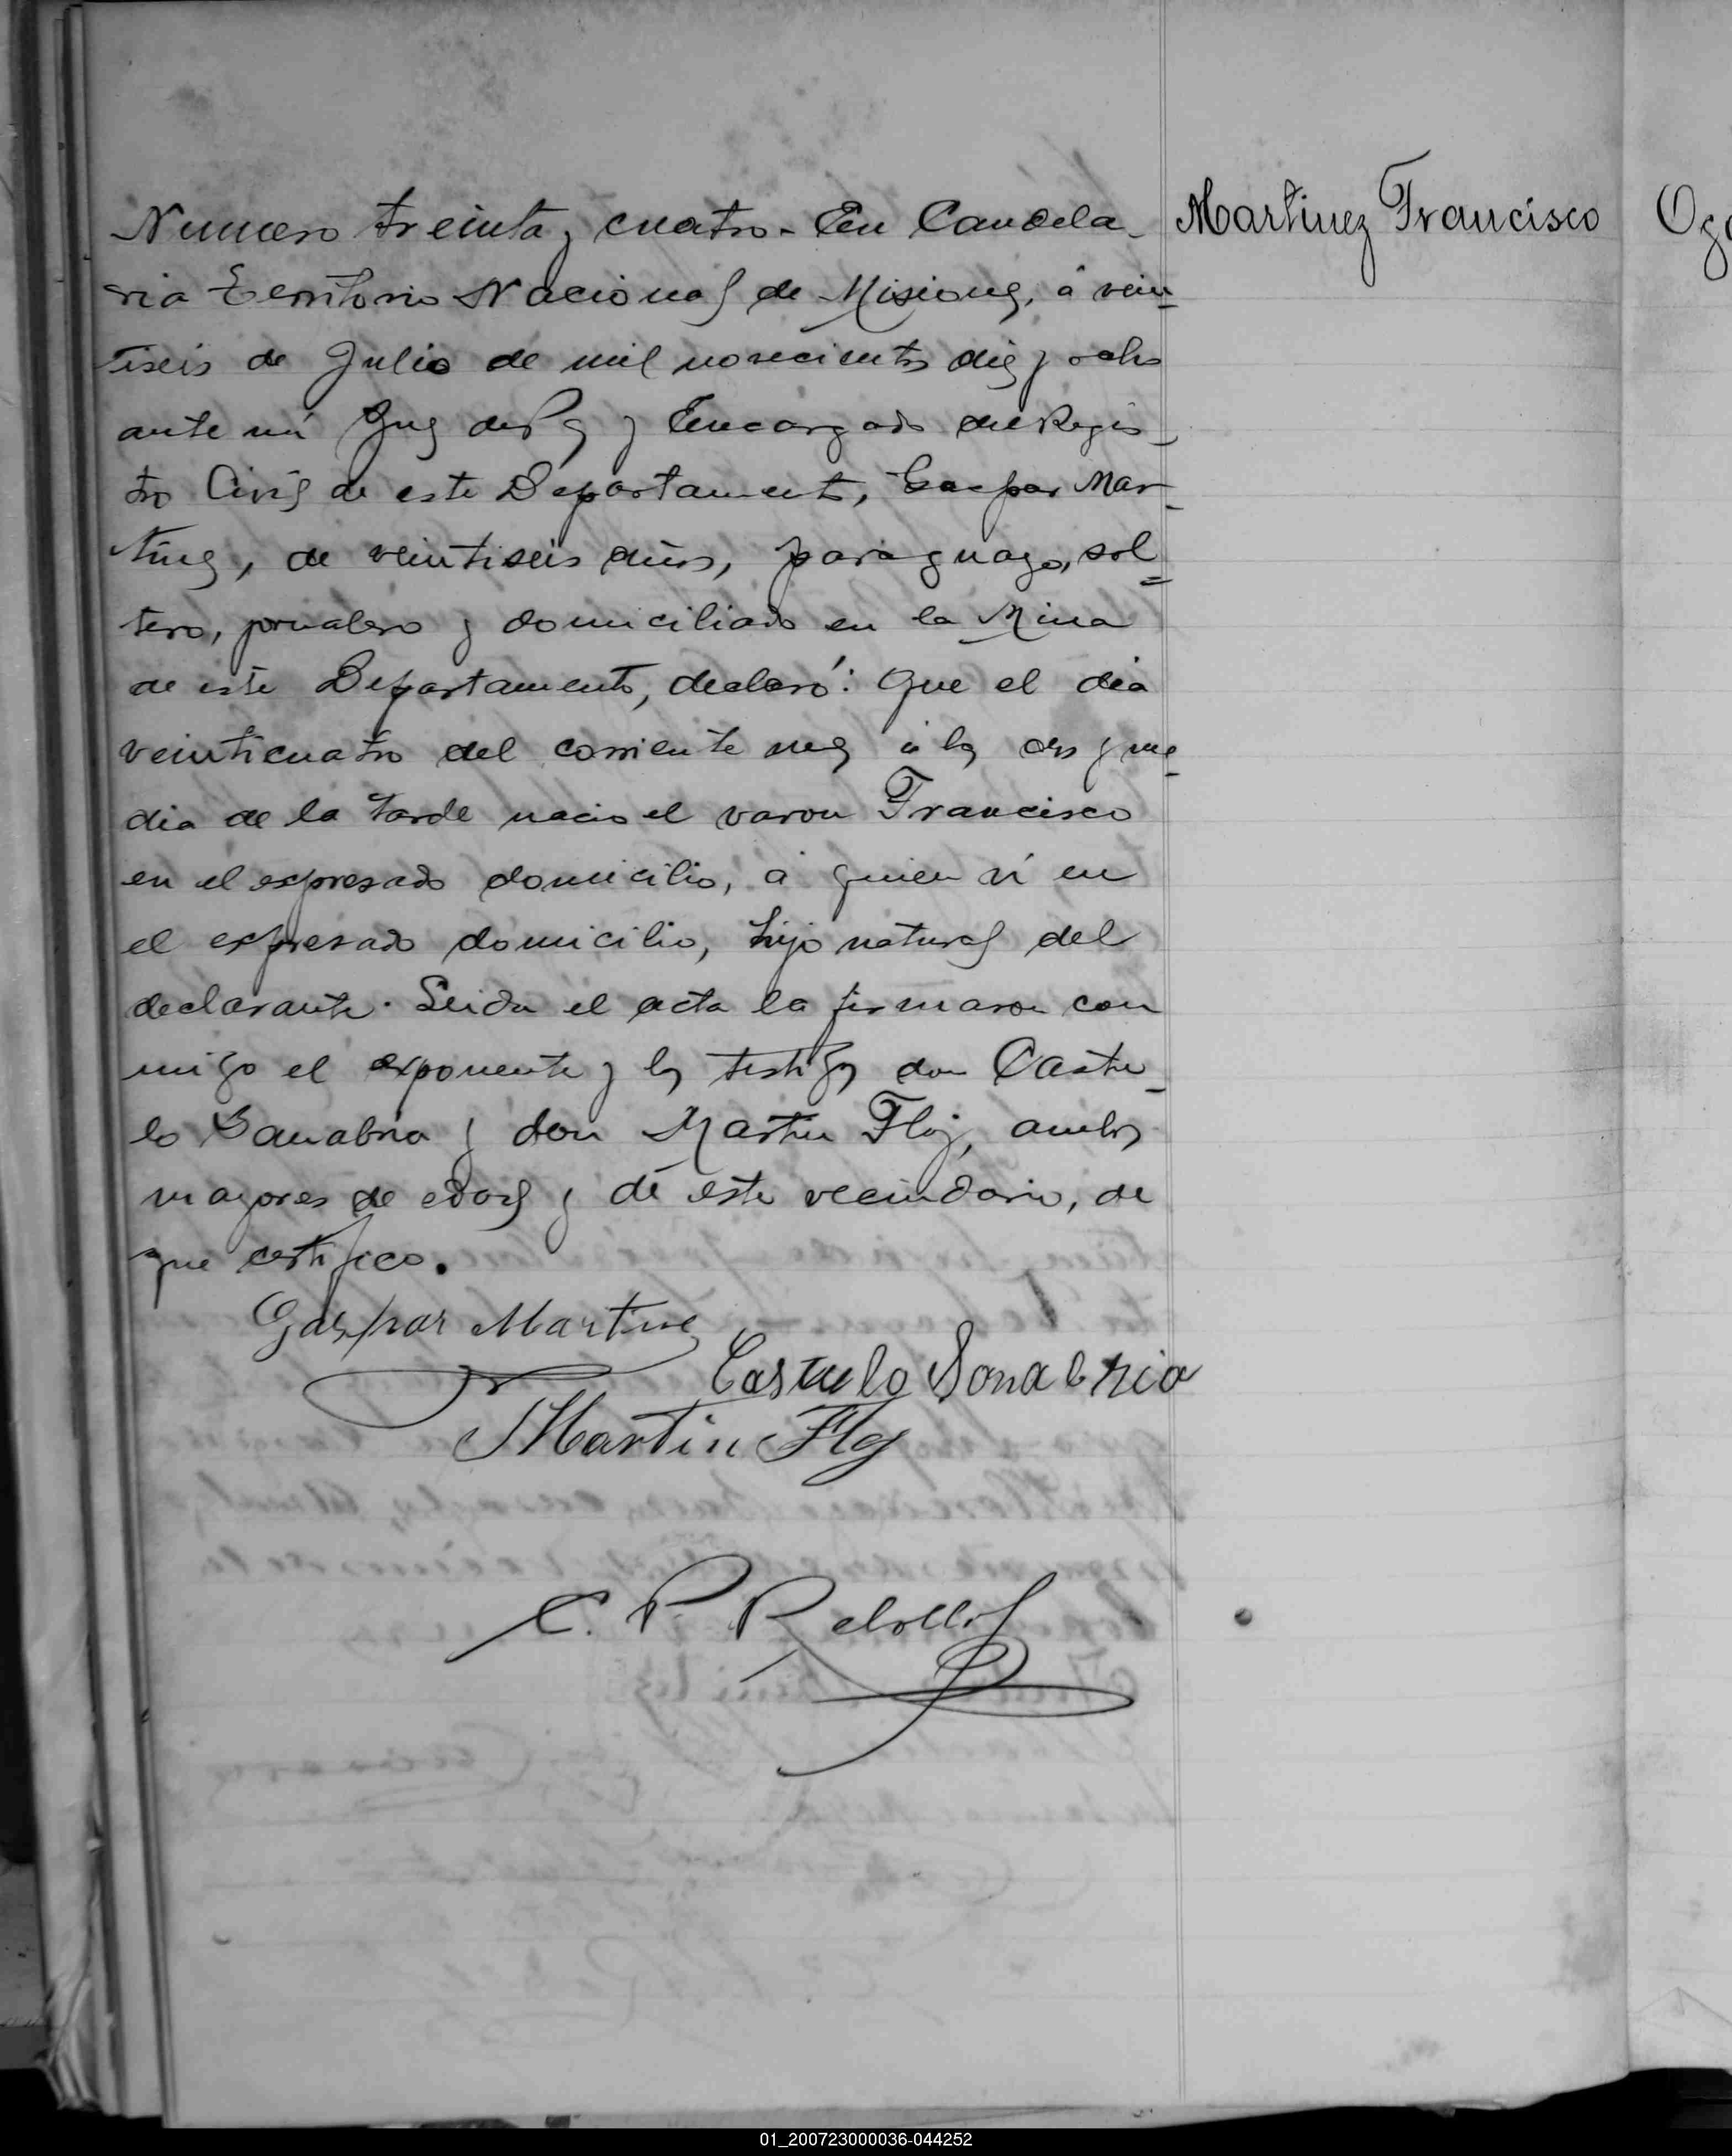 Martinez Francisco
Numero treinta y cuatro - En Candela-
ria Territorio Nacional de Misiones, á vein-
tiseis de Julio de mil novecientos diez y ocho
ante mi Juez de Paz y Encargado del Regis-
tro Civil de este Departamento, Gaspar Mar-
tinez, de veintiseis años, paraguayo, sol-
tero, jornalero y domiciliado en la Mina
de este Departamento, declaró: Que el dia
veinticuatro del corriente mes á las dos y me-
dia de la tarde nacio el varon Francisco
en el expresado domicilio, á quien ví en
el expresado domicilio, hijo natural del
declarante. Leida el acta la firmaron con
migo el exponente y los testigos don Castu-
lo Sanabria y don Martin Floj, ambos
mayores de edad y de este vecindario, de
que certifico.
Gaspar Martinez
Castulo Sanabria
Martin
C. P. Rebollo
01_200723000036-044252